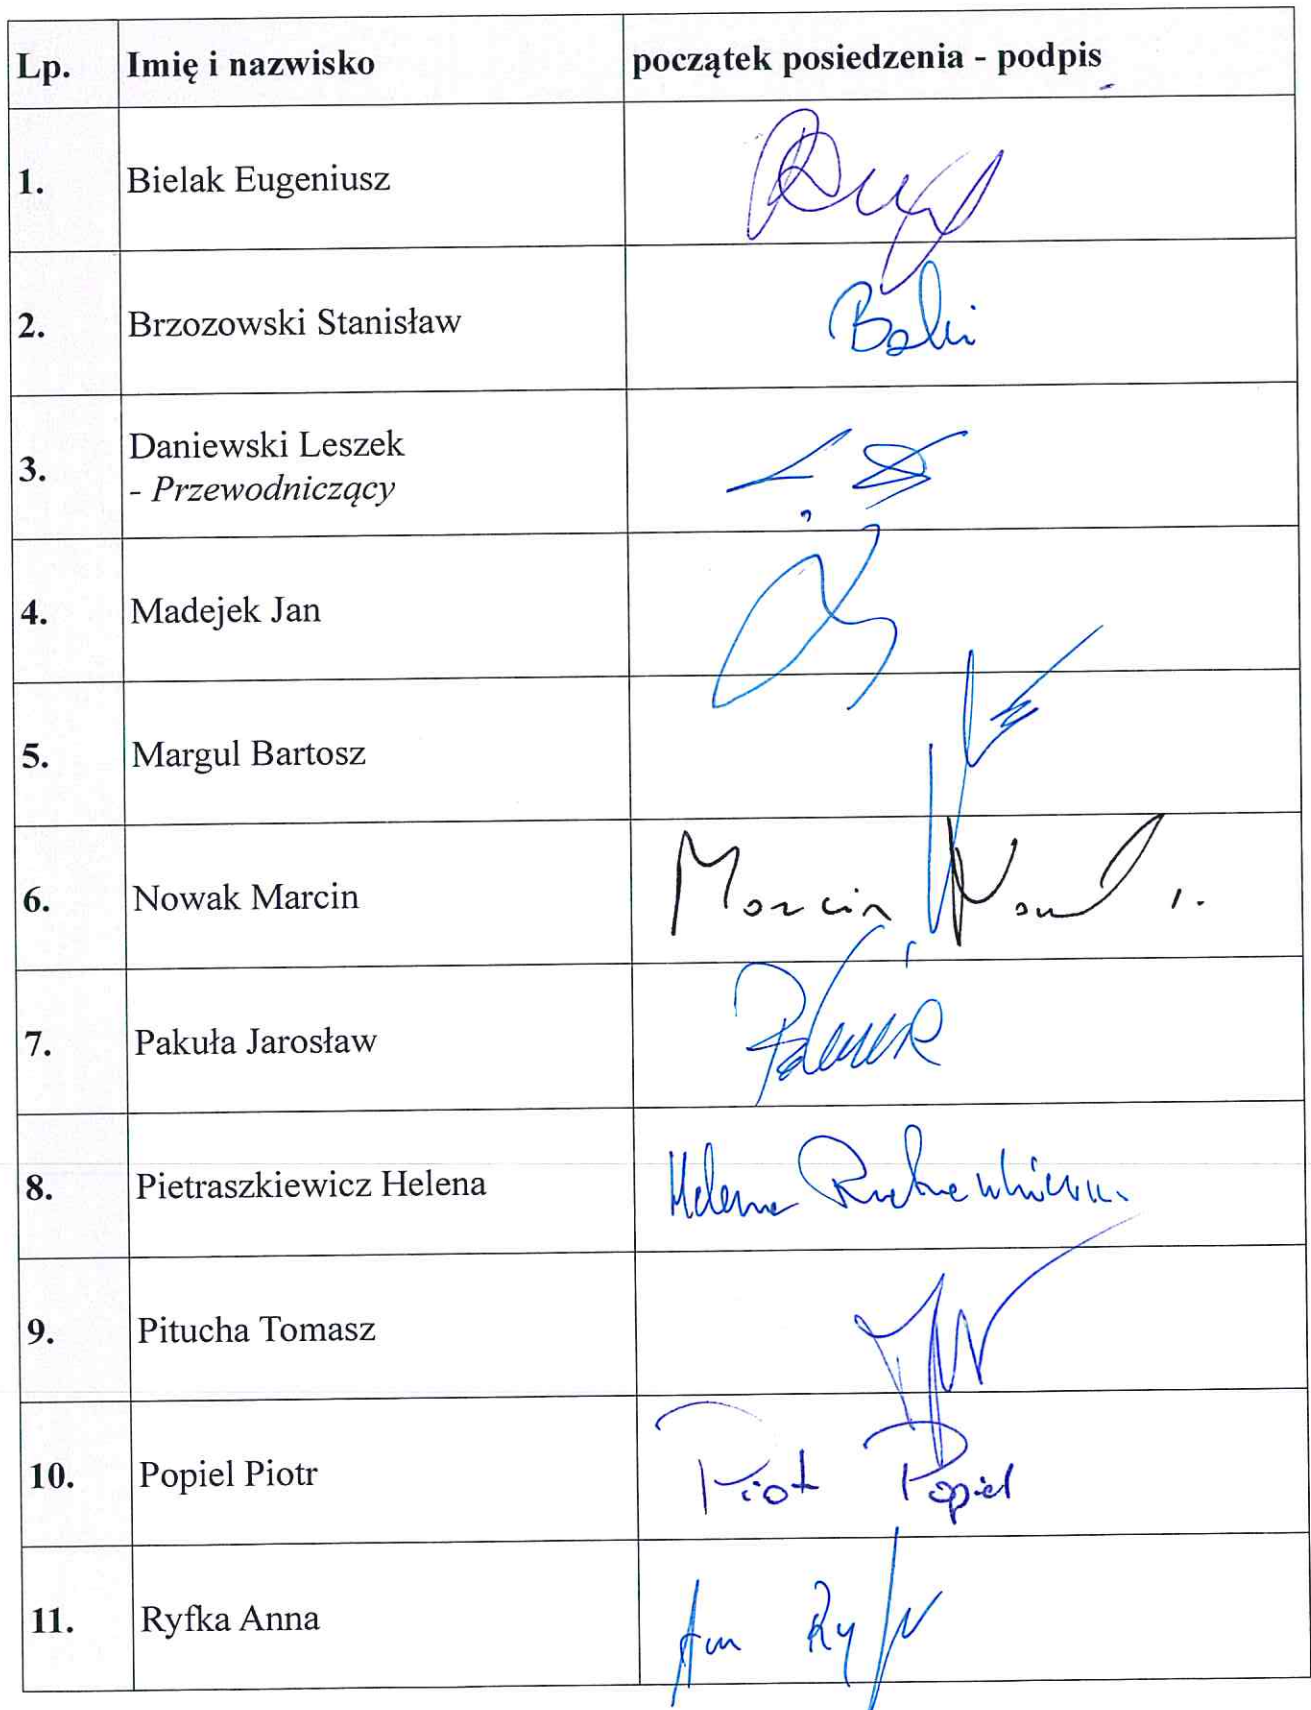 Lp. Imię i nazwisko początek posiedzenia - podpis
1. Bielak Eugeniusz
2. Brzozowski Stanisław
3. Daniewski Leszek
- Przewodniczący
4. Madejek Jan
5. Margul Bartosz
6. Nowak Marcin Marcin
7. Pakuła Jarosław
8. Pietraszkiewicz Helena Helena
9. Pitucha Tomasz
10. Popiel Piotr Piotr Popiel
11. Ryfka Anna